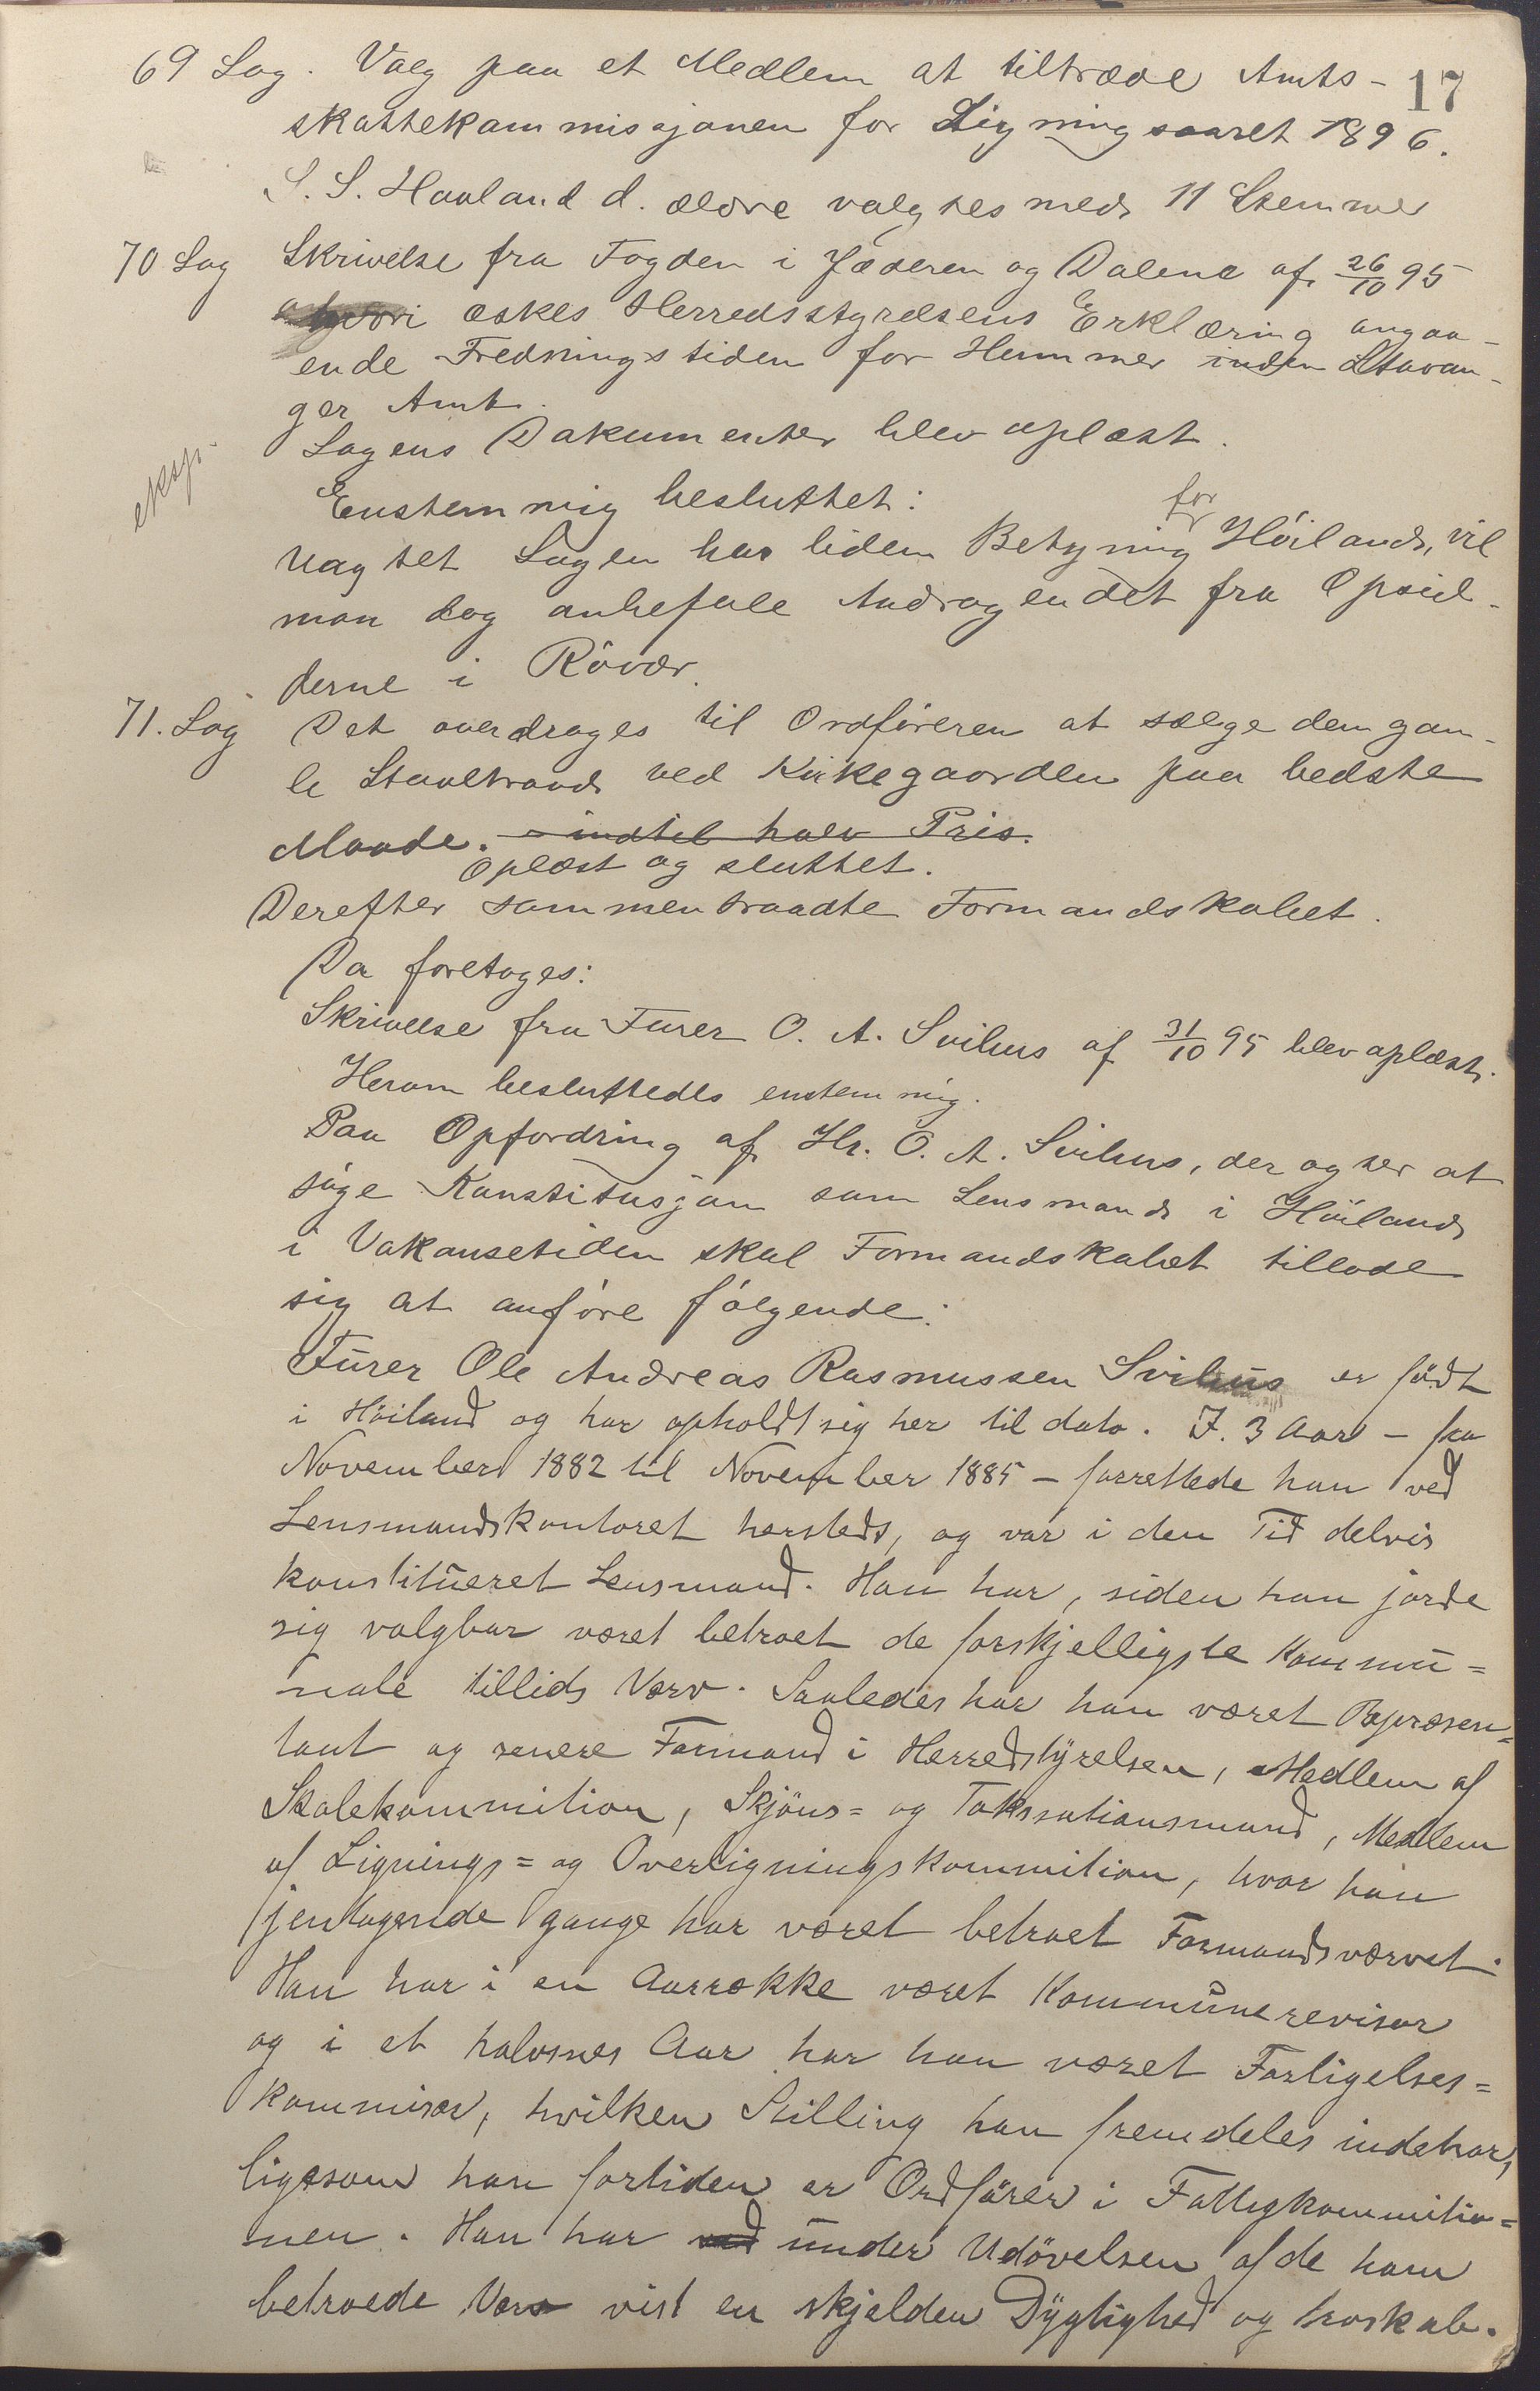 69 Sag. Valg paa et Medlem at tiltræde Amts- 17
skattekommissjonen for Ligningsaaret 1896.
S. S. Haaland d. ældre valgtes med 11 Stemmer
70 Sag Skrivelse fra Fogden i Jæderen og Dalene af 26/10 95
hvori æskes Herredsstyrelsens Erklæring angaa-
ende Fredningstiden for Hummer inden Stavan-
ger Amt.
Sagens Dokumenter blev oplæst.
eksp.
Enstemmig besluttet:
Uagtet Sagen har liden Betyning for Høiland, vil
man dog anbefale Andragendet fra Opsid-
derne i Röver.
71. Sag Det overdrages til Ordföreren at sælge den gam-
le Staaltraad ved Kirkegaarden paa bedste
Maade. indtil halv Pris.
Oplæst og sluttet.
Derefter sammentraadte Formandskabet.
Da foretoges:
Skrivelse fra Furer O. A. Svihus af 31/10 95 blev oplæst.
Herom besluttedes enstemmig.
Paa Opfordring af Hr. O. A. Svihus, der agter at
söge Konstitusjon som Lensmand i Höiland
i Vakansetiden skal Formandskabet tillade
sig at anføre følgende:
Furer Ole Andreas Rasmussen Svihus er födt
i Høiland og har opholdt sig her til dato. I. 3 Aar – fra
November 1882 til November 1885 – forrettede han ved
Lensmandskontoret hersteds, og var i den Tid delvis
konstitueret Lensmand. Han har, siden han jorde
sig valgbar været betroet de forskjelligste Kommu=
nale tillids Værv. Saaledes har han været Repræsen=
tant og senere Formand i Herredstyrelsen, Medlem af
Skolekommition, Skjöns= og Takssationsmand, Medlem
af Lignings= og Overligningskommition, hvor han
jentagende gange har været betroet Formandsværvet.
Han har i en Aarrække været Kommunerevisor
og i et halvsnes Aar har han været Forligelses=
kommisær, hvilken Stilling han fremdeles indehar,
ligesom han fortiden er Ordfører i Fattigkommitio=
nen. Han har ved under Udövelsen af de ham
betroede Værv vist en skjelden Dygtighed og troskab.